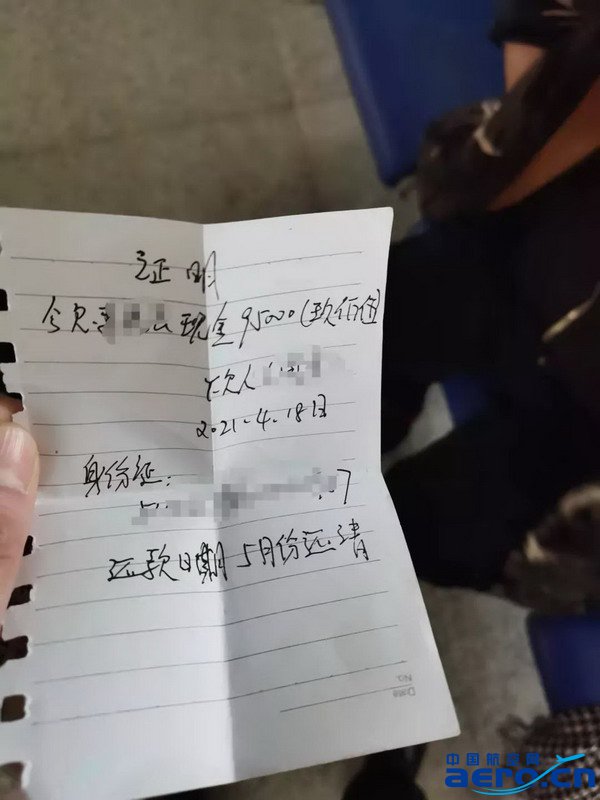 证明
今欠 现金95000(玖佰伍)
欠人
2021.4.18日
身份证:
7
还款日期 5月份还清
No.
Date
中国航空网
aero.cn